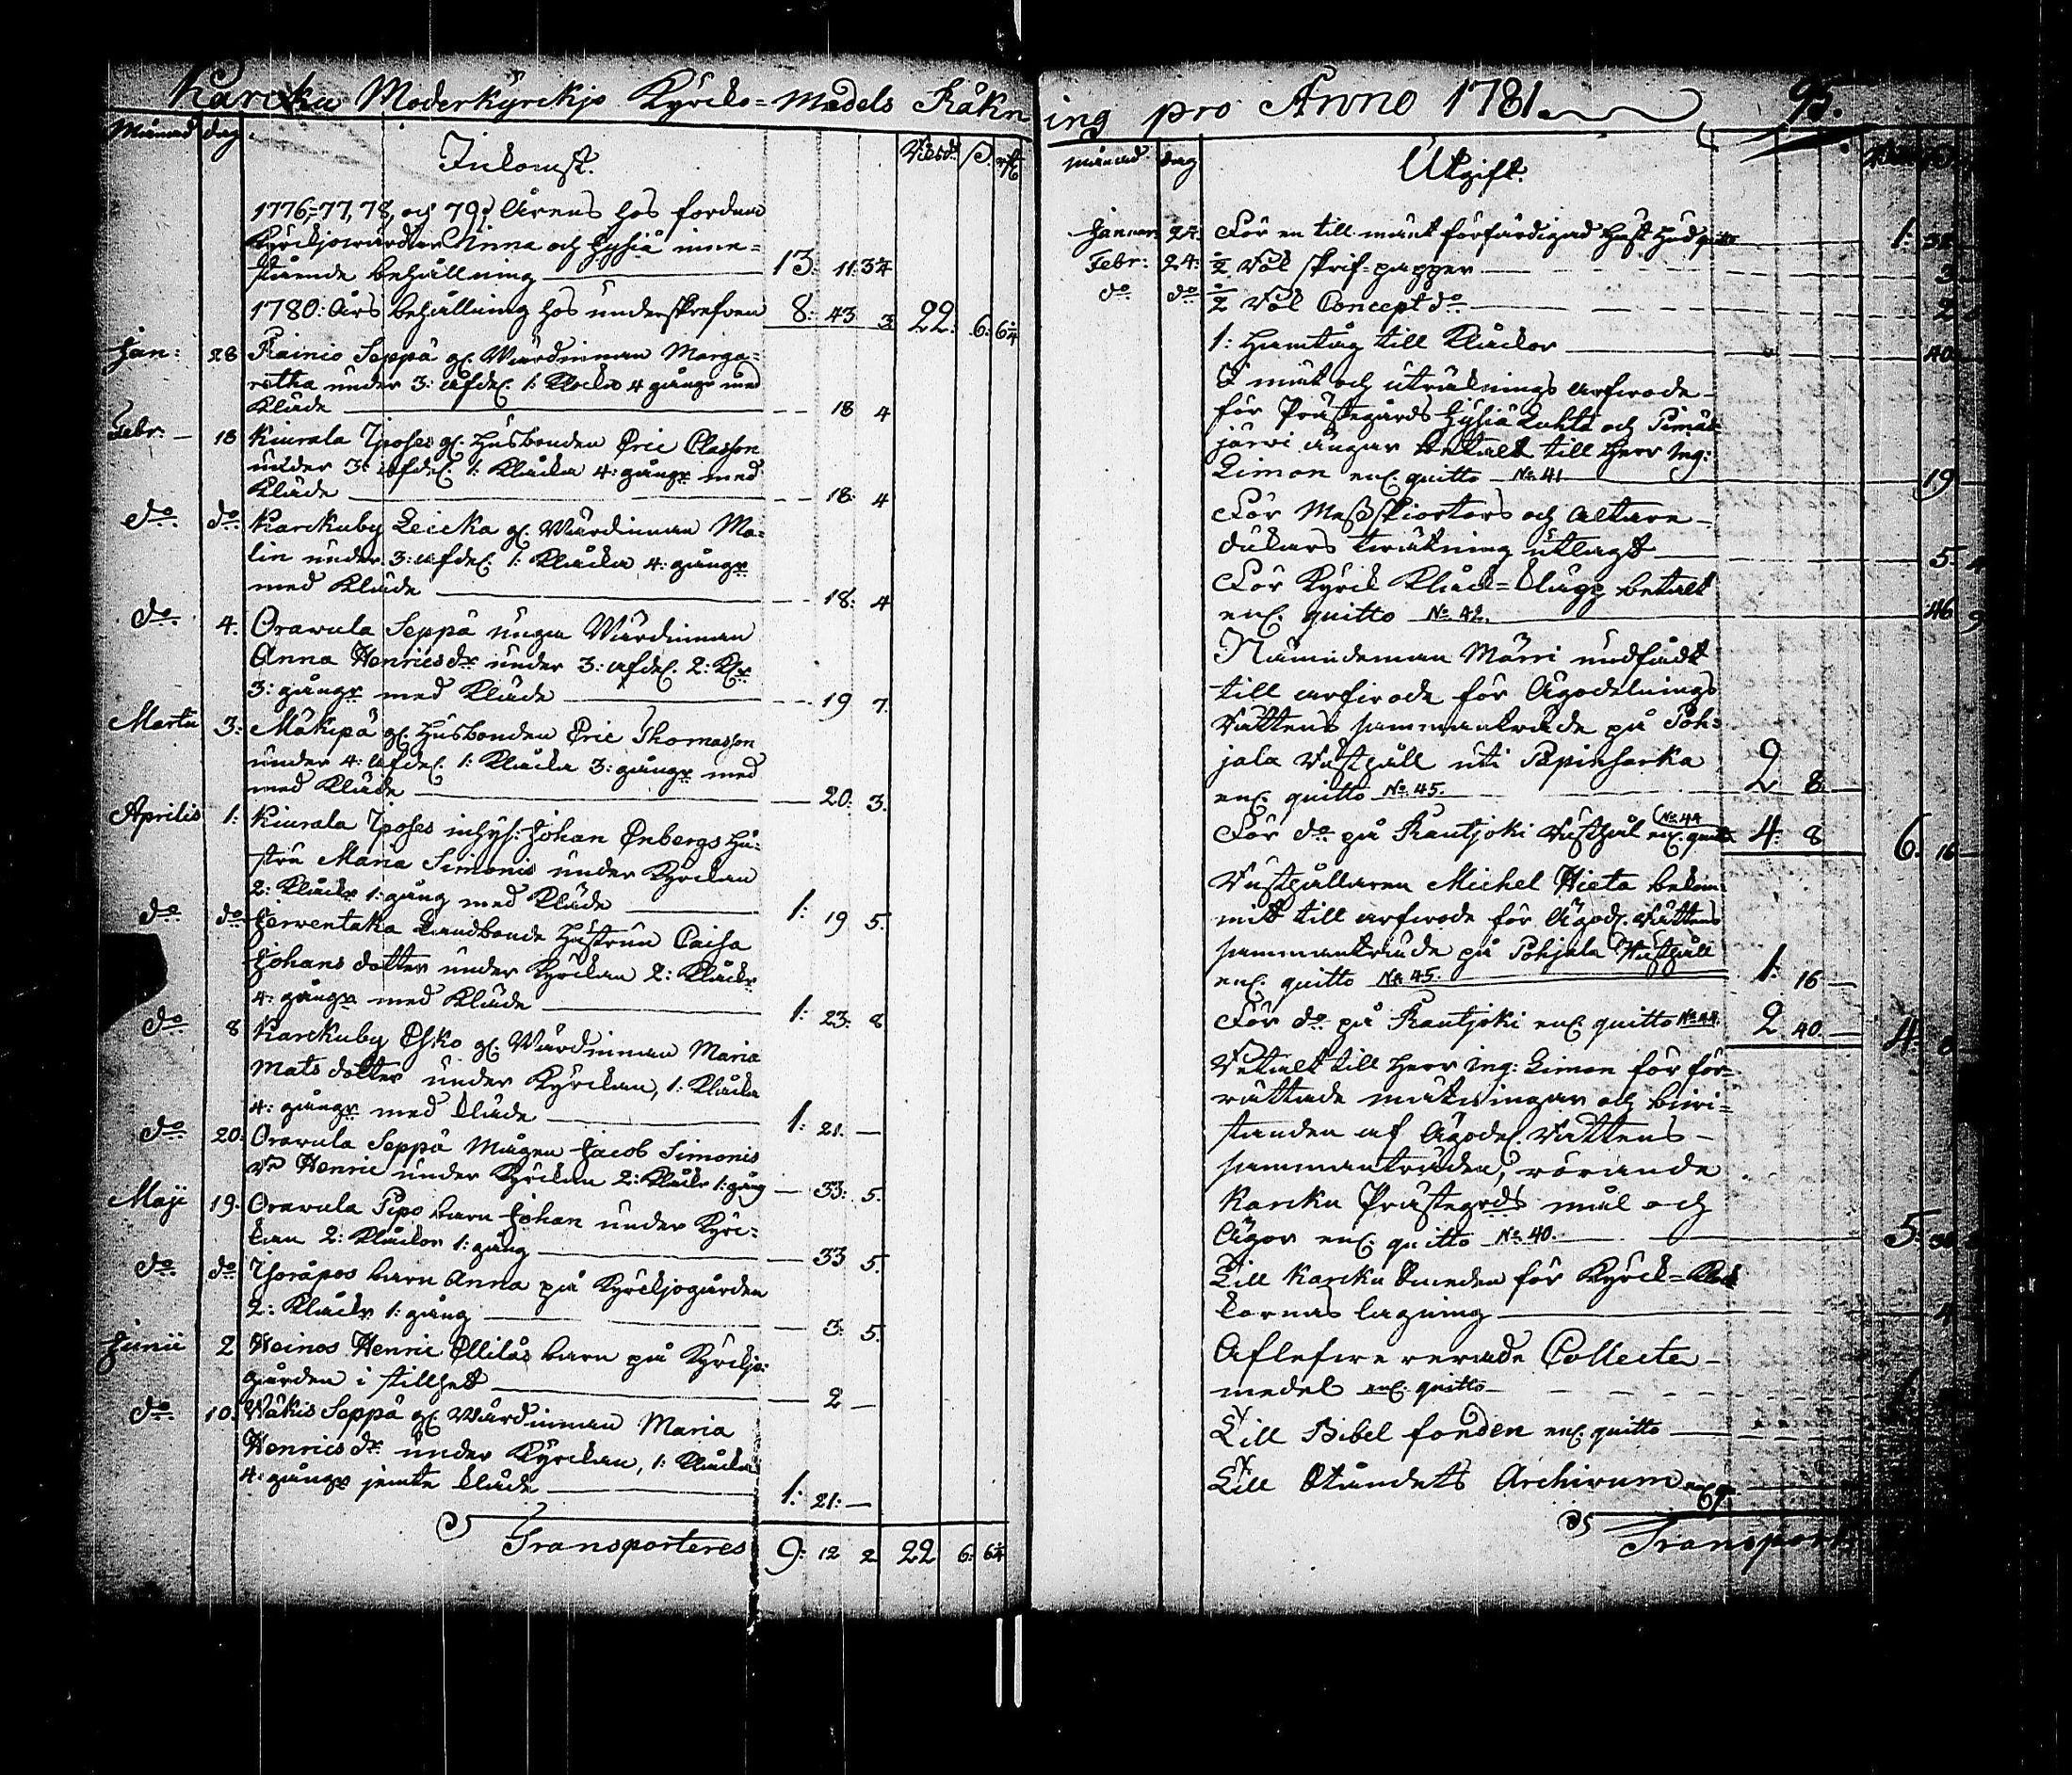 Karcku Moderkyrckjo Kyrcko=Medels Räkning pro Anno 1781.
95.
Månad dag
Inkomst.
Riksd. s. rst
1776,=77, 78, och 79: Årens hos fordna
Kyrckjowärden Anna och Hysiä inne=
stående behållning 13: 11: 3¼
1780: Års behållning hos underskrefven 8: 43 3. 22: 6: 6¼
Jan: 28 Rainio Seppä gl. Wärdinnan Marga=
retha under 3: afdel. 1: Klocka 4 gångr med
Kläde 18 4
Febr. 18 Kiurala Iposes gl. Husbonden Eric Classon
under 3: afdel. 1: Klåcka 4: gångr med
Kläde 18. 4
do do Karckuby Leicka gl. Wärdinnan Ma=
lin under 3: afdel. 1: Klåcka 4: gångr
med Kläde 18: 4
do 4. Oravula Seppä unga Wärdinnan
Anna Henricsdr under 3: afdel. 2: Klr
3: gångr med Kläde 19 7.
Martii 3: Mäkipä gl. Husbonden Eric Thomasson
under 4: afdel. 1: Klåcka 3: gångr med
med Kläde 20: 3.
Aprilis 1: Kiurala Iposes inhys: Johan Enbergs Hu=
stru Maria Simonis under Kyrckan
2: Klåckr 1: gång med Kläde 1: 19 5.
do do Järventaka Landbonde Hustrun Caisa
Johans dotter under Kyrckan 2: Klåckr
4: gångr med Kläde 1: 23: 8
do 8 Karckuby Esko gl. Wärdinnan Maria
Mats dotter under Kyrckan, 1: Klåcka
4: gångr med kläde 1: 21. —
do 20: Oravula Seppä Mågen Jacob Simonis
Henric under Kyrckan 2: Klåckr 1: gång 33: 5.
Maji 19. Oravula Pipo barn Johan under Kyrc=
kan 2: Klåckor 1: gång 33 5.
do do barn Anna på Kyrckjogården
2: Klåckr 1: gång 3: 5.
Junii 2 Heinos Henric Ollilas barn på Kyrckjo=
gården i stillhet 2 —
do 10. Wäkis Seppä gl. Wärdinnan Maria
Henricsdr under Kyrckan, 1: Klåcka
4: gångr jemte kläde 1: 21: —
Transporteres 9: 12 2 22 6: 6¼
månad dag
Utgift.
Januar. 24. För en till förfärdigad 1: 38
Febr: 24: ½ bok skrif=papper 3
do do ½ bok Concept do 2
1: Hamtåg till Klåckor 40
I mät och uträknings arfvode
för Prästegårds Hysiä Luhta och
järvi ängar betalt till Herr Ing:
Limon enl. quitto No. 41 19
För Mess skiortors och altare
dukars tvätning utlagt 5.
För Kyrck Klåck=klapp betalt
enl. quitto No. 42. 46 9
Nämndeman Märri undfådt
till arfvode för Ägodelnings
Rättens sammanträde på Poh=
jala Rusthåll uti Papinsarka
enl. quitto No. 45. 2 8.
För do på Rautjoki Rusthål enl. quitto No. 44 4. 8 6. 16
Rusthållaren Michel Hieta bekom=
mit till arfvode för Ägodl. Rättens
sammanträde på Pohjala Rusthåll
enl. quitto No. 45. 1: 16 —
För do på Rautjoki enl. quitto No. 44. 2 40. — 4.
Betalt till Herr Ing: Limon för för=
rättade mätningar och bevi=
standen af Ägodel. Rättens
sammanträden, rörande
Karcku Prästegrds mål och
Ägor enl. quitto No. 40. 5:
Till Karcku Smeden för Kyrck=Klåc
kornas lagning 4
Aflefvererade Collecte
medel enl. quitto
Till Bibel fonden enl. quitto
Till Ståndets Archivum enl. q.
Transport